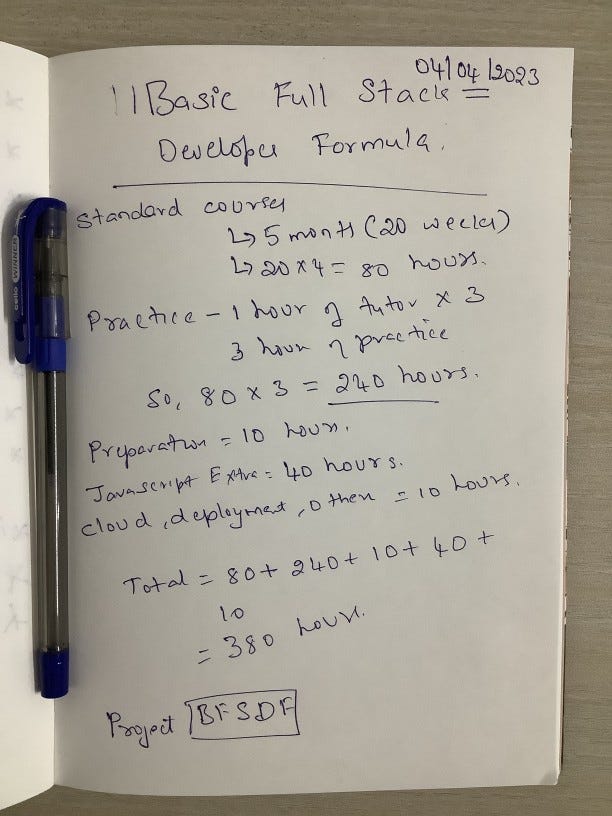 04/04/2023
Basic Full Stack
Developer Formula.
Standard courses
↳ 5 months (20 weeks)
↳ 20 x 4 = 80 hours.
Practice - 1 hour of tutor x 3
3 hour of practice
So, 80 x 3 = 240 hours.
Preparation = 10 hours.
Javascript Extra = 40 hours.
cloud, deployment, other = 10 hours.
Total = 80 + 240 + 10 + 40 +
10
= 380 hours.
Project BFSDF
cello WINNER